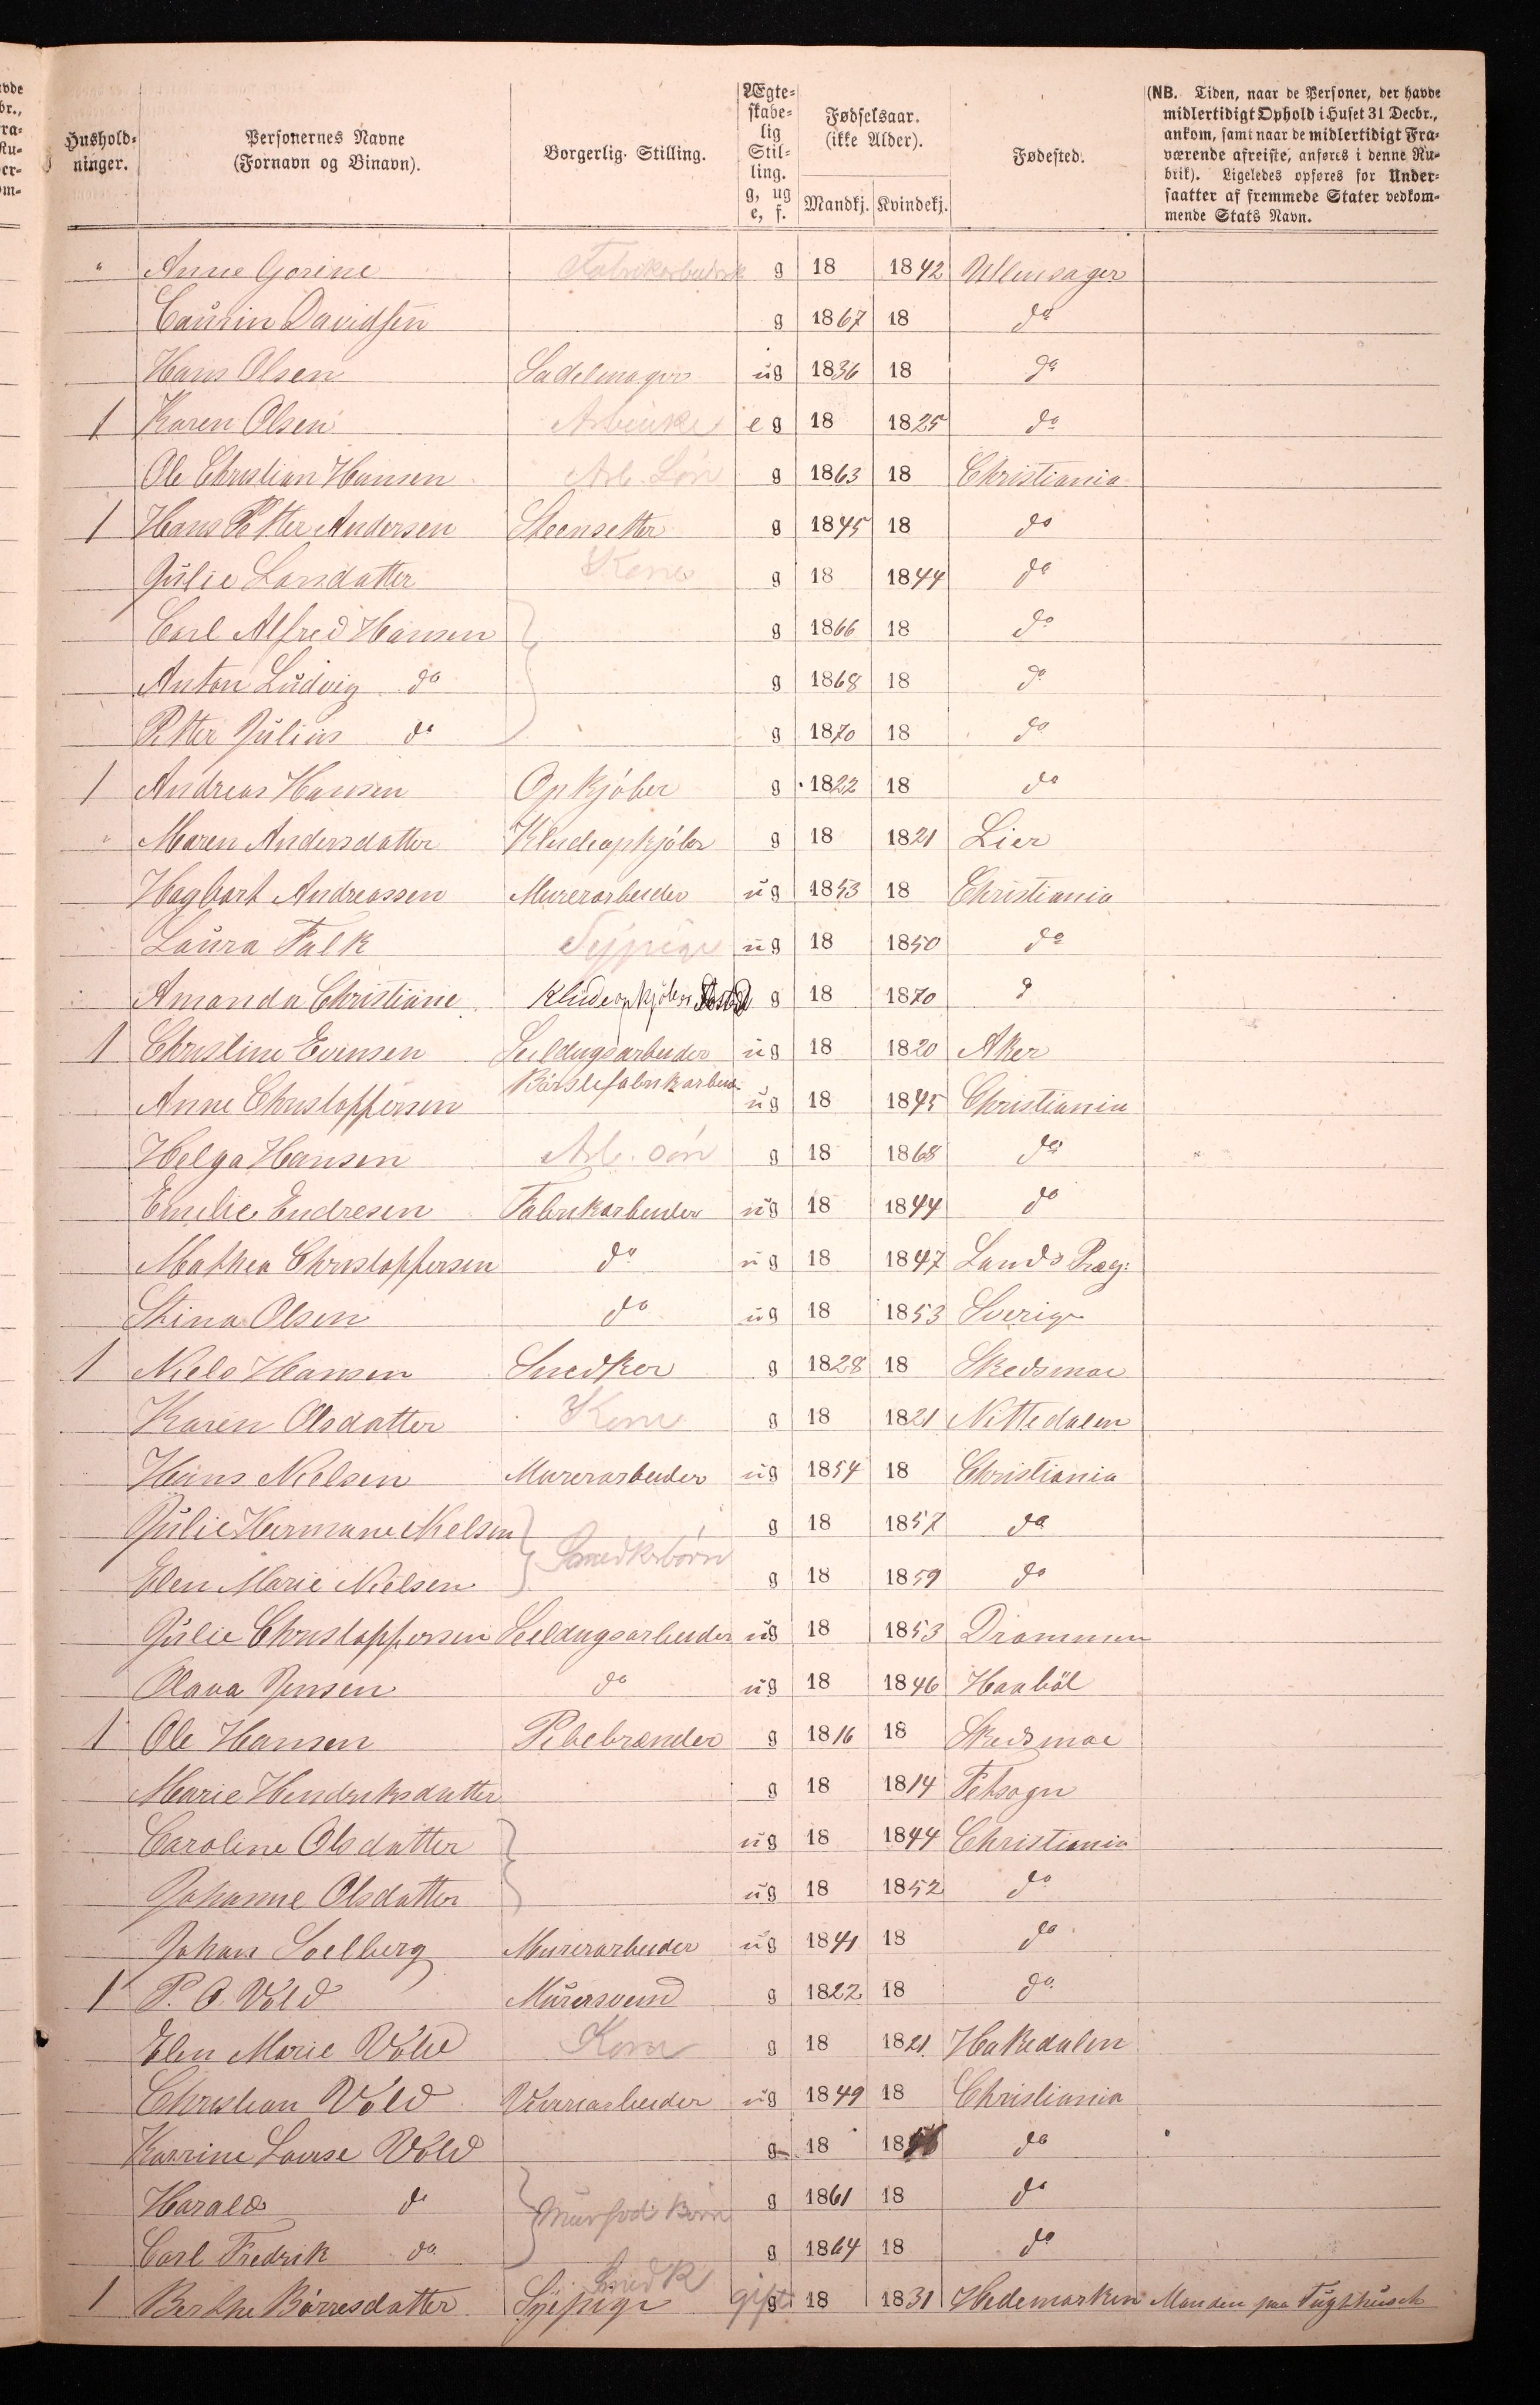 Hushold-
ninger.
Personernes Navne
(Fornavn og Binavn).
Borgerlig Stilling.
Ægte-
skabe-
lig
Stil-
ling.
g, ug
e, f.
Fødselsaar.
(ikke Alder).
Mandkj. Kvindekj.
Fødested.
(NB. Tiden, naar de Personer, der havde
midlertidigt Ophold i Huset 31 Decbr.,
ankom, samt naar de midlertidigt Fra-
værende afreiste, anføres i denne Ru-
brik). Ligeledes opføres for Under-
saatter af fremmede Stater vedkom-
mende Stats Navn.
" Anne Gorine g 18 1842 Ullensager
Davidsen g 1867 18 do
Hans Olsen Sadelmager ug 1836 18 do
1 Karen Olsen e g 18 1825 do
Ole Christian Hansen g 1863 18 Christiania
1 Hans Petter Andersen Steensetter g 1845 18 do
Julie Larsdatter Kone g 18 1844 do
Carl Alfred Hansen g 1866 18 do
Anton Ludvig do g 1868 18 do
Petter Julius do g 1870 18 do
1 Andreas Hansen Opkjöber g 1822 18 do
" Maren Andersdatter Kludeopkjöber g 18 1821 Lier
Hagbart Andreassen Murerarbeider ug 1853 18 Christiania
Laura Falk Sypige ug 18 1850 do
Amanda Christiane Kludeopkjöbers g 18 1870 d
1 Christine Evensen Seildugsarbeider ug 18 1820 Aker
Anne Christoffersen Börstefabrikarbeid ug 18 1845 Christiania
Helga Hansen g 18 1868 do
Emilie Endresen Fabrikarbeider ug 18 1844 do
Mathea Christoffersen do ug 18 1847 Lands Præg:
Stina Olsen do ug 18 1853 Sverige
1 Niels Hansen Snedker g 1828 18 Skedsmoe
Karen Olsdatter Kone g 18 1821 Nittedalen
Hans Nielsen Murerarbeider ug 1854 18 Christiania
Julie Hermane Nielsen g 18 1857 do
Snedkerbörn
Elen Marie Nielsen g 18 1859 do
Julie Christoffersen Seildugsarbeider ug 18 1853 Drammen
Olava Jensen do ug 18 1846 Haaböl
1 Ole Hansen Pibebrænder g 1816 18 Skedsmoe
Marie Hendriksdatter g 18 1814 Fetsogn
Caroline Olsdatter ug 18 1844 Christiania
Johanne Olsdatter ug 18 1852 do
Johan Soelberg Murerarbeider ug 1841 18 do
1 P. O. Vold Murersvend g 1822 18 do
Elen Marie Vold Kone g 18 1821 Hakedalen
Christian Vold ug 1849 18 Christiania
Karrine Lovise Vold g 18 18 do
Harald do g 1861 18 do
Börn
Carl Fredrik do g 1864 18 do
1 Berthe Börresdatter Syepige gift g 18 1831 Hedemarken Manden paa Tugthuset